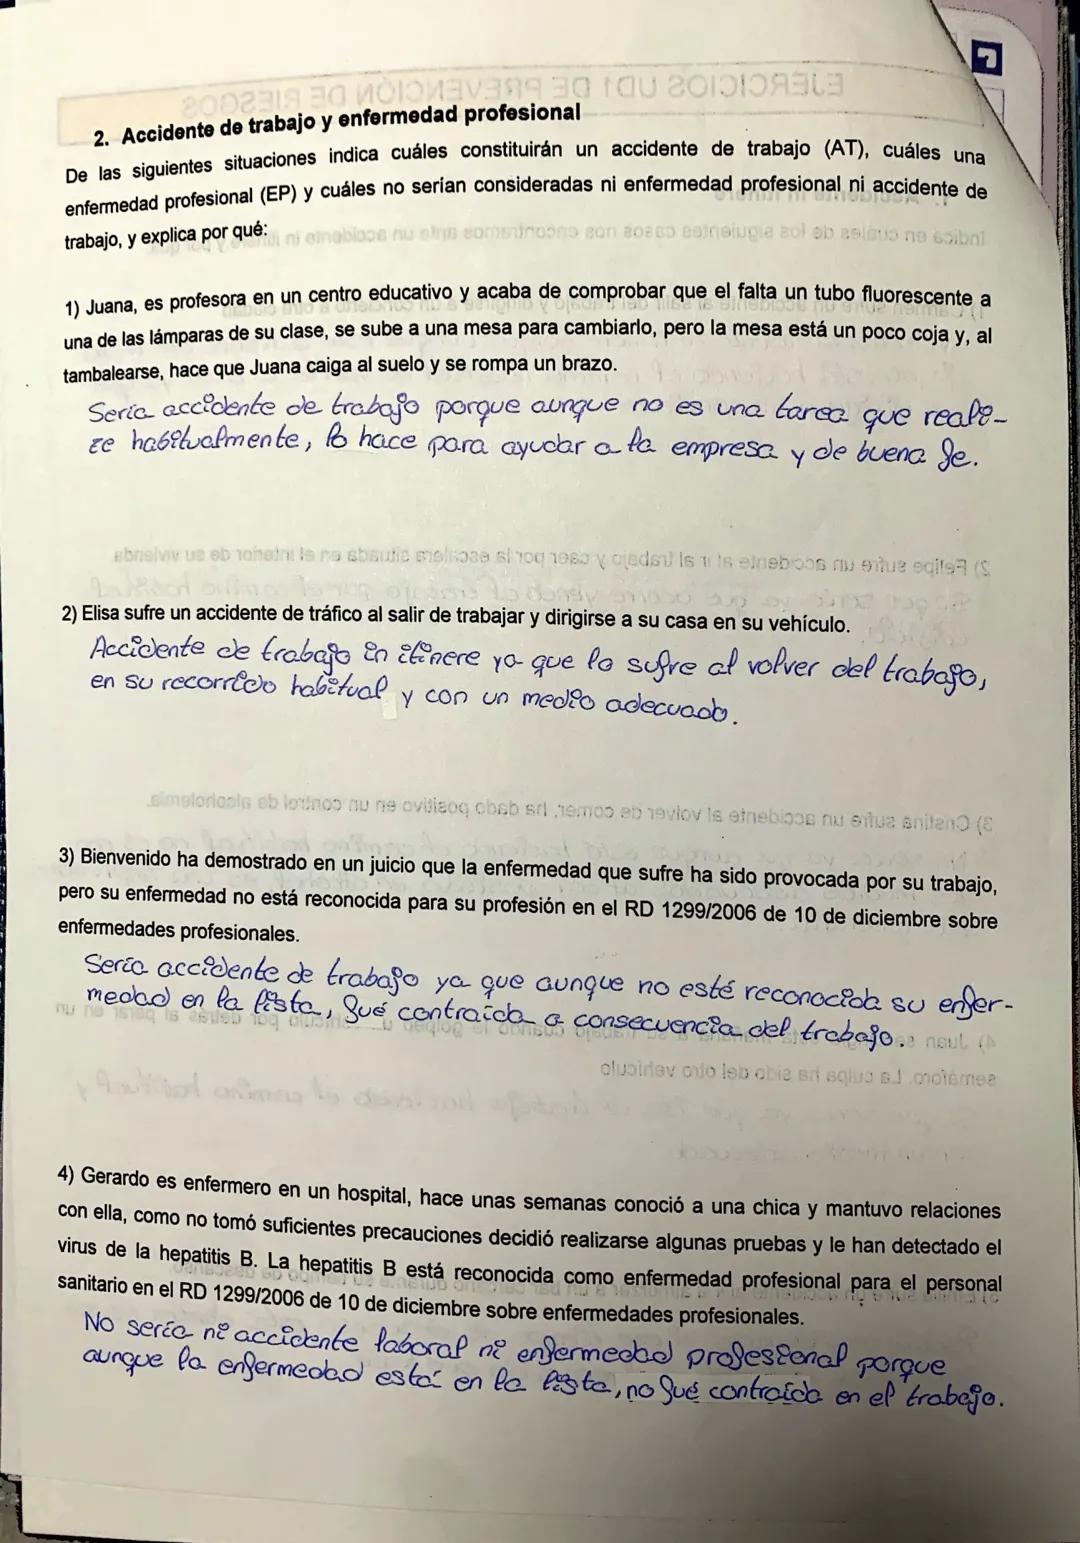 2. Accidente de trabajo y enfermedad profesional
De las siguientes situaciones indica cuáles constituirán un accidente de trabajo (AT), cuáles una
enfermedad profesional (EP) y cuáles no serían consideradas ni enfermedad profesional ni accidente de
trabajo, y explica por qué:
1) Juana, es profesora en un centro educativo y acaba de comprobar que el falta un tubo fluorescente a
una de las lámparas de su clase, se sube a una mesa para cambiarlo, pero la mesa está un poco coja y, al
tambalearse, hace que Juana caiga al suelo y se rompa un brazo.
Sería accidente de trabajo porque aunque no es una tarea que reali-
ze habitualmente, lo hace para ayudar a la empresa y de buena fe.
2) Elisa sufre un accidente de tráfico al salir de trabajar y dirigirse a su casa en su vehículo.
Accidente de trabajo in itínere ya que lo sufre al volver del trabajo,
en su recorrido habitual y con un medio adecuado.
3) Bienvenido ha demostrado en un juicio que la enfermedad que sufre ha sido provocada por su trabajo,
pero su enfermedad no está reconocida para su profesión en el RD 1299/2006 de 10 de diciembre sobre
enfermedades profesionales.
Sería accidente de trabajo ya que aunque no esté reconocida su enfer-
medad en la lista, fué contraída a consecuencia del trabajo.
4) Gerardo es enfermero en un hospital, hace unas semanas conoció a una chica y mantuvo relaciones
con ella, como no tomó suficientes precauciones decidió realizarse algunas pruebas y le han detectado el
virus de la hepatitis B. La hepatitis B está reconocida como enfermedad profesional para el personal
sanitario en el RD 1299/2006 de 10 de diciembre sobre enfermedades profesionales.
No sería ni accidente laboral ni enfermedad profesional porque
aunque la enfermedad está en la lista, no fué contraída en el trabajo.